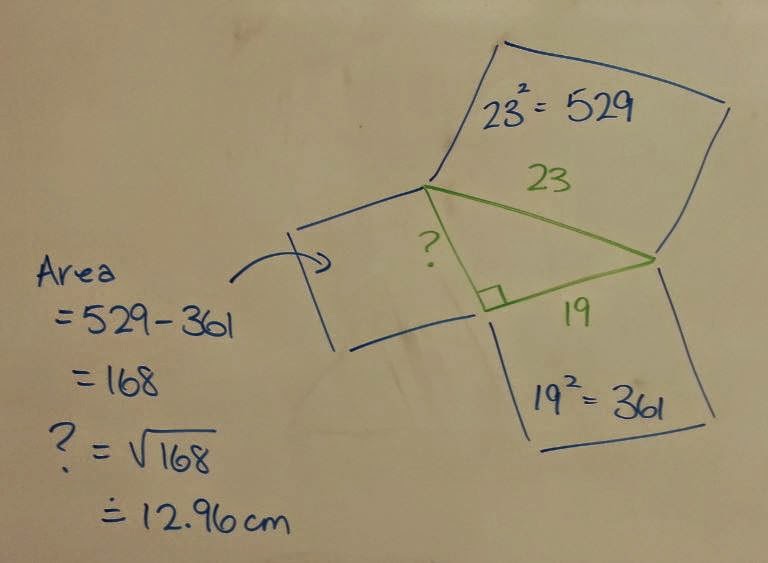 23² = 529
23
?
19
19² = 361
Area
= 529 - 361
= 168
? = √168
≐ 12.96 cm